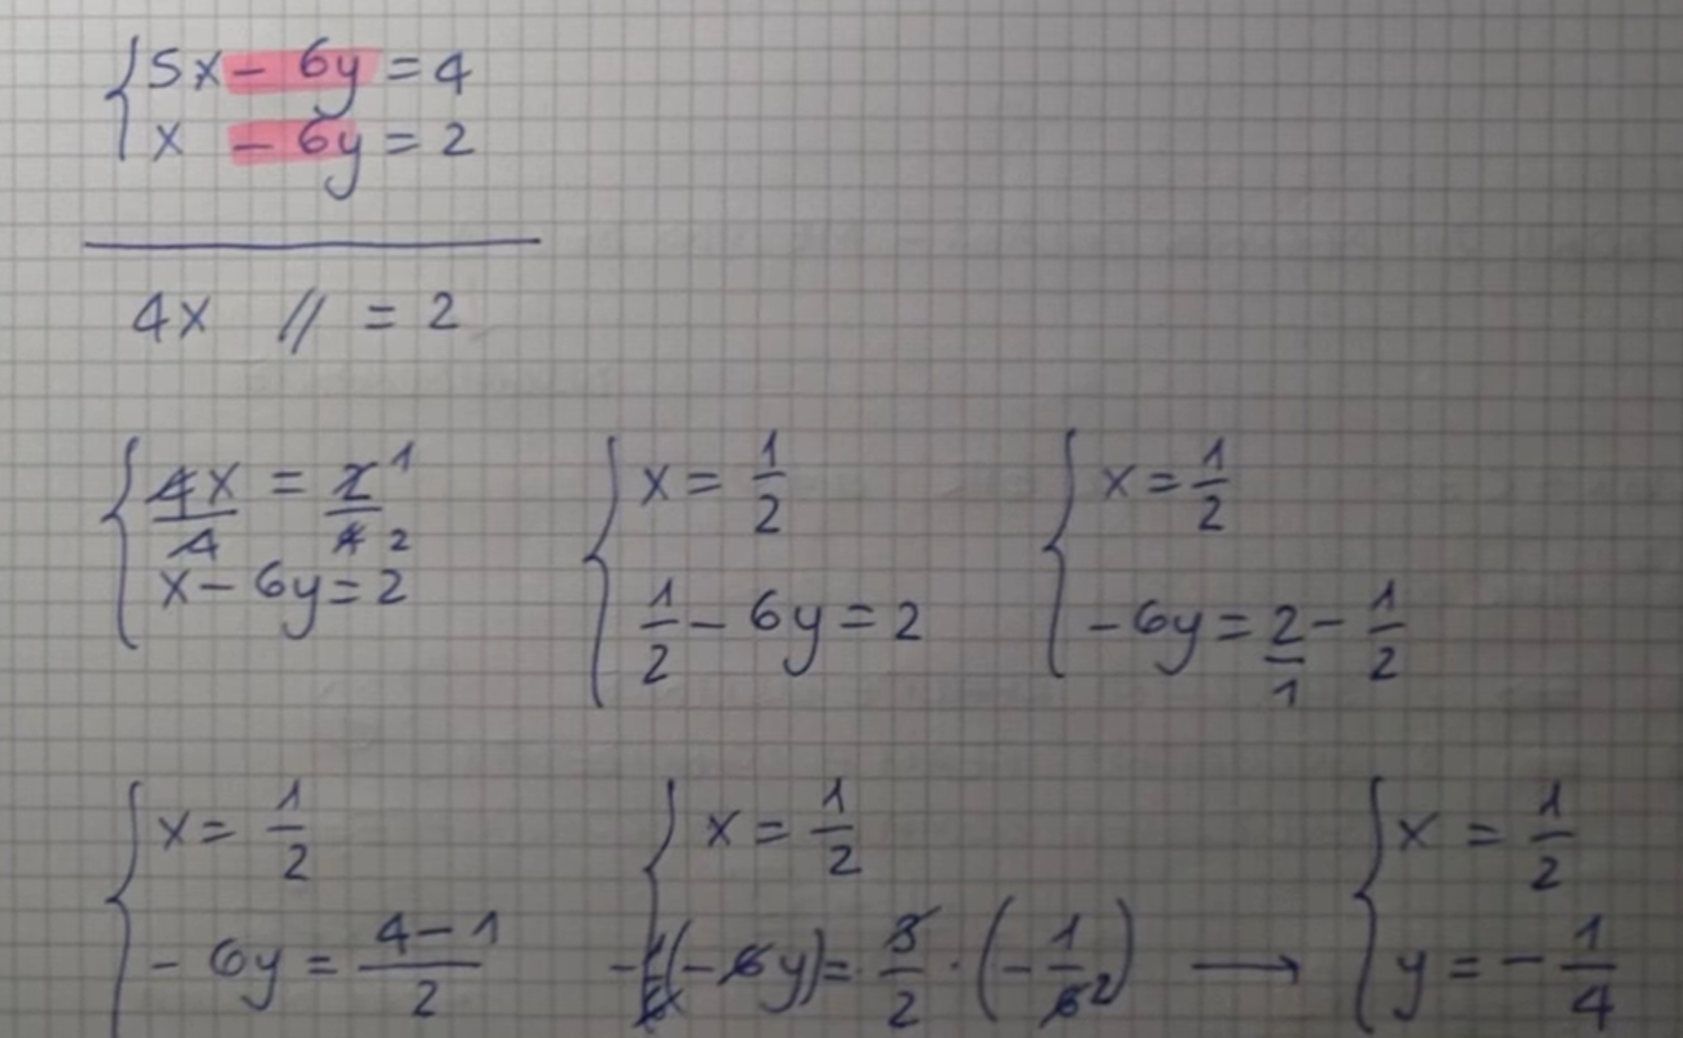 5x - 6y = 4
x - 6y = 2
4x // = 2
4x/4 = 2/4 1/2
x - 6y = 2
x = 1/2
1/2 - 6y = 2
x = 1/2
-6y = 2/1 - 1/2
x = 1/2
-6y = (4-1)/2
x = 1/2
-1/6(-6y) = 3/2 · (-1/6 2) →
x = 1/2
y = -1/4